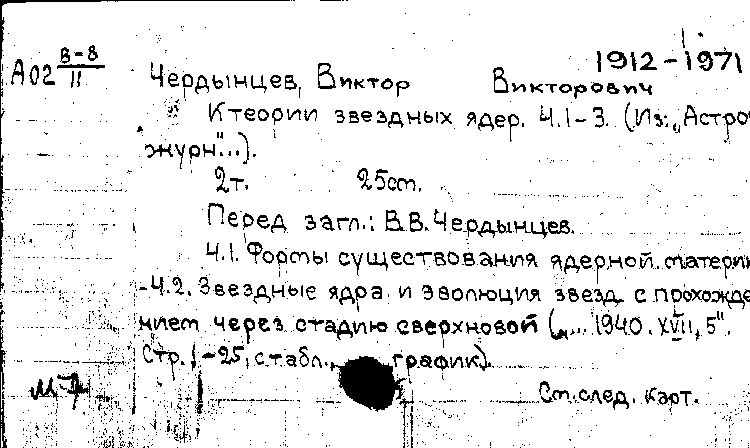 1912-1971
А02 В-8/11 Чердынцев, Виктор Викторович
К теории звездных ядер. Ч.1-3. (Из: „Астро
журн"...).
2т. 25см.
Перед загл.: В.В. Чердынцев.
Ч.1. Формы существования ядерной материи
-Ч.2. Звездные ядра и эволюция звезд с прохожде
нием через стадию сверхновой („... 1940. XVII, 5".
Стр. 1-25, с табл., график).
См. след. карт.